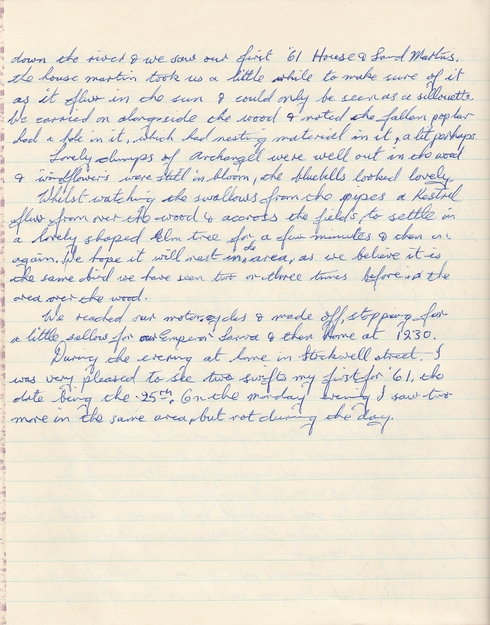 down the river & we saw our first '61 House & Sand Martins.
the house martin took us a little while to make sure of it
as it flew in the sun & could only be seen as a sillouette.
We carried on alongside the wood & noted the fallen poplar
had a hole in it, which had nesting material in it, a tit perhaps.
Lovely clumps of Archangel were well out in the wood
& windflowers were still in bloom, the bluebells looked lovely.
Whilst watching the swallows from the pipes a Kestrel
flew from over the wood & acorss the fields, to settle in
a lovely shaped Elm tree for a few minutes & then on
again. We hope it will nest in the area, as we believe it is
the same bird we have seen two or three times before in the
area over the wood.
We reached our motorcycles & made off, stopping for
a little sallow for our Emperor larva & then home at 1930.
During the evening at home in Stockwell street, I
was very pleased to see two swifts my first for '61, the
date being the 25th. (On the monday evening I saw two
more in the same area, but not during the day.